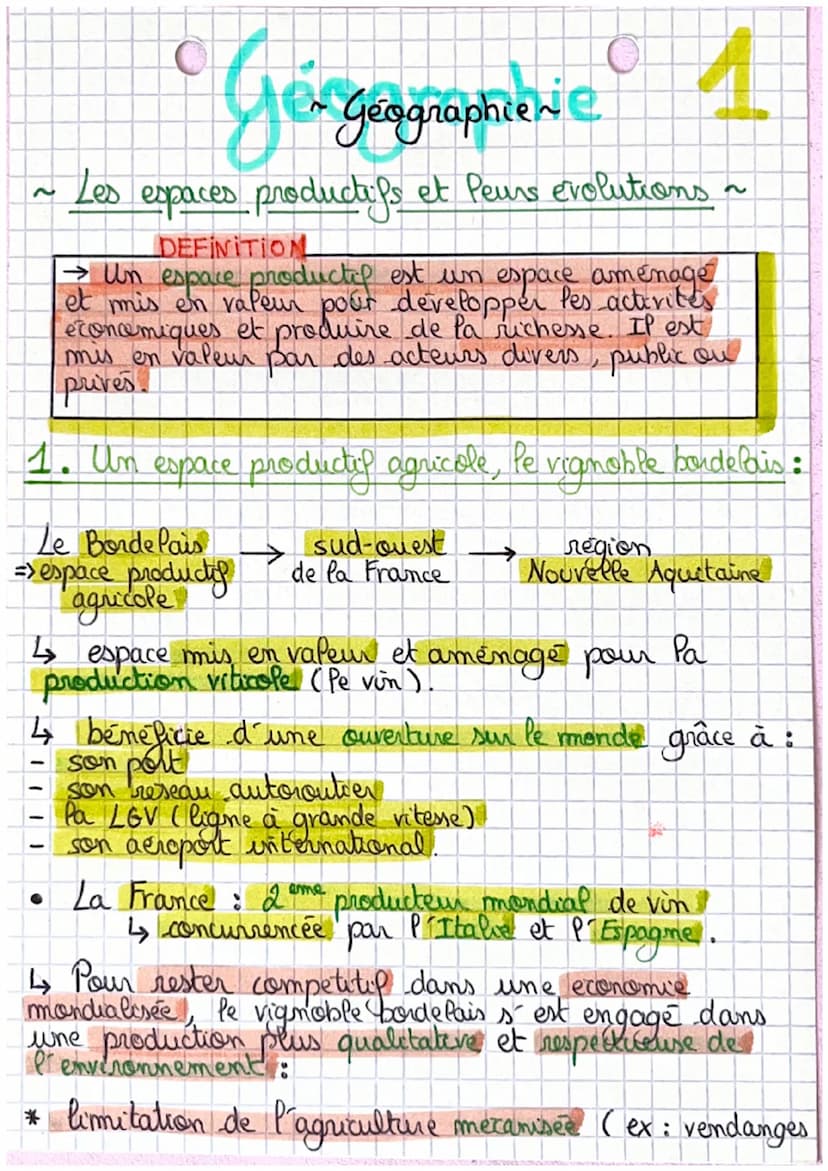 Géographie 1
~ Géographie ~
~ Les espaces productifs et leurs évolutions ~
DEFINITION
→ Un espace productif est un espace aménagé
et mis en valeur pour développer les activités
économiques et produire de la richesse. Il est
mis en valeur par des acteurs divers, public ou
privés.
1. Un espace productif agricole, le vignoble bordelais :
Le Bordelais → sud-ouest → région
=> espace productif de la France Nouvelle Aquitaine
agricole
↳ espace mis en valeur et aménagé pour la
production viticole (le vin).
↳ bénéficie d'une ouverture sur le monde grâce à :
- son port
- son réseau autoroutier
- la LGV (ligne à grande vitesse)
- son aéroport international.
• La France : 2ème producteur mondial de vin
↳ concurrencée par l'Italie et l'Espagne.
↳ Pour rester compétitif dans une économie
mondialisée, le vignoble bordelais s'est engagé dans
une production plus qualitative et respectueuse de
l'environnement :
* limitation de l'agriculture mécanisée (ex : vendanges